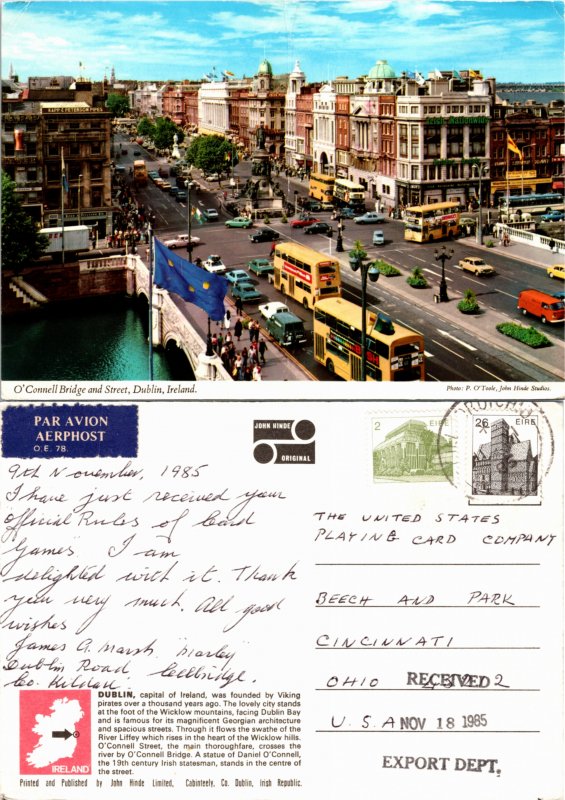 KAPP & PETERSON PIPES
Irish Nationwide
O'Connell Bridge and Street, Dublin, Ireland.
Photo: P. O'Toole, John Hinde Studios.
PAR AVION
AERPHOST
O.E. 7B.
JOHN HINDE
ORIGINAL
2 EIRE
26 EIRE
9th November, 1985
I have just received your
Official Rules of Card
Games" I am
delighted with it. Thank
you very much. All good
wishes
James A. Marsh. "Marley"
Dublin Road, Cellbridge.
Co. Kildare.
THE UNITED STATES
PLAYING CARD COMPANY
BEECH AND PARK
CINCINNATI
OHIO
RECEIVED 2
U.S.A
NOV 18 1985
EXPORT DEPT.
IRELAND
DUBLIN, capital of Ireland, was founded by Viking
pirates over a thousand years ago. The lovely city stands
at the foot of the Wicklow mountains, facing Dublin Bay
and is famous for its magnificent Georgian architecture
and spacious streets. Through it flows the swathe of the
River Liffey which rises in the heart of the Wicklow hills.
O'Connell Street, the main thoroughfare, crosses the
river by O'Connell Bridge. A statue of Daniel O'Connell,
the 19th century Irish statesman, stands in the centre of
the street.
Printed and Published by John Hinde Limited, Cabinteely, Co. Dublin, Irish Republic.